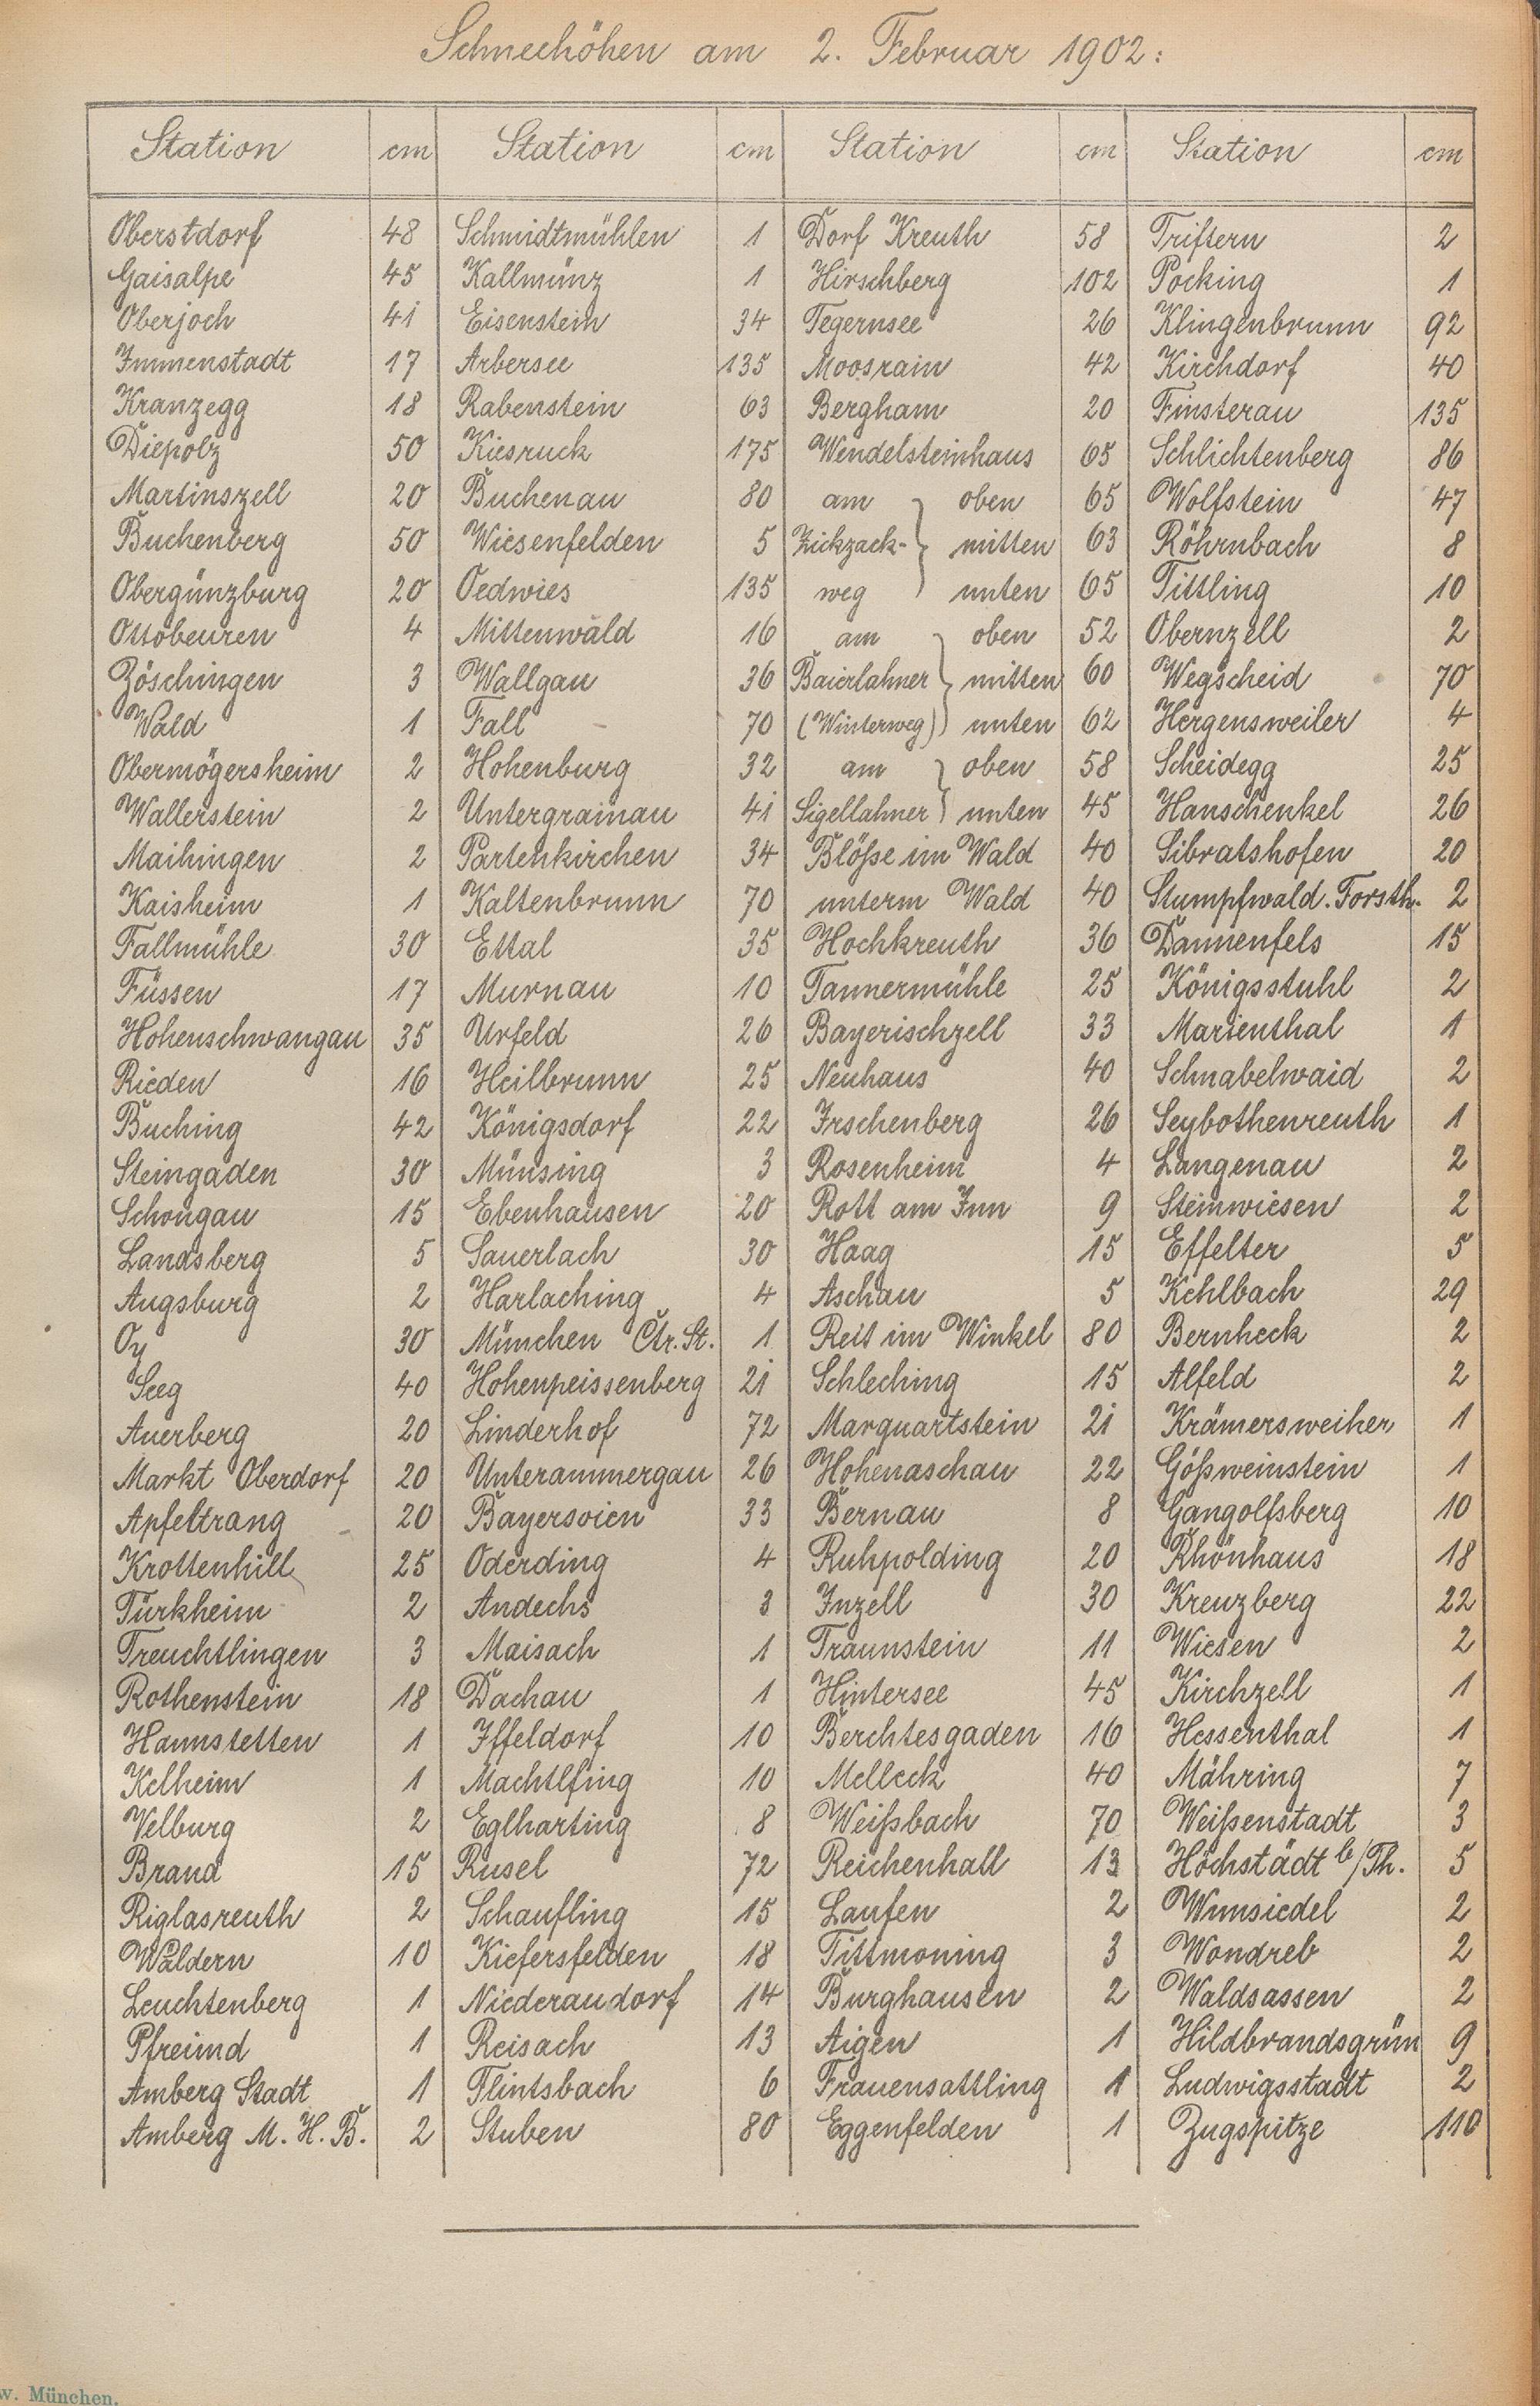 Schneehöhen am 2. Februar 1902:
Station cm Station cm Station cm Station cm
Oberstdorf 48 Schmidtmühlen 1 Dorf Kreuth 58 Triftern 2
Gaisalpe 45 Kallmünz 1 Hirschberg 102 Pocking 1
Oberjoch 41 Eisenstein 34 Tegernsee 26 Klingenbrunn 92
Immenstadt 17 Arbersee 135 Moosrain 42 Kirchdorf 40
Kranzegg 18 Rabenstein 63 Bergham 20 Finsterau 135
Diepolz 50 Kiesruck 175 Wendelsteinhaus 65 Schlichtenberg 86
Martinszell 20 Buchenau 80 am oben 65 Wolfstein 47
Buchenberg 50 Wiesenfelden 5 Zickzack- mitten 63 Röhrnbach 8
Obergünzburg 20 Oedwies 135 weg unten 65 Tittling 10
Ottobeuren 4 Mittenwald 16 am oben 52 Obernzell 2
Zöschingen 3 Wallgau 36 Baierlahner mitten 60 Wegscheid 70
Wald 1 Fall 70 (Winterweg) unten 62 Hergensweiler 4
Obermögersheim 2 Hohenburg 32 am oben 58 Scheidegg 25
Wallerstein 2 Untergrainau 41 Sigellahner unten 45 Hanschenkel 26
Maihingen 2 Partenkirchen 34 Blöße im Wald 40 Sibratshofen 20
Kaisheim 1 Kaltenbrunn 70 unterm Wald 40 Stumpfwald. Forsth. 2
Fallmühle 30 Ettal 35 Hochkreuth 36 Dannenfels 15
Füssen 17 Murnau 10 Tannermühle 25 Königsstuhl 2
Hohenschwangau 35 Urfeld 26 Bayerischzell 33 Marienthal 1
Rieden 16 Heilbrunn 25 Neuhaus 40 Schnabelwaid 2
Buching 42 Königsdorf 22 Irschenberg 26 Seybothenreuth 1
Steingaden 30 Münsing 3 Rosenheim 4 Langenau 2
Schongau 15 Ebenhausen 20 Rott am Inn 9 Steinwiesen 2
Landsberg 5 Sauerlach 30 Haag 15 Effelter 5
Augsburg 2 Harlaching 4 Aschau 5 Kehlbach 29
Oy 30 München Ctr. St. 1 Reit im Winkel 80 Bernheck 2
Seeg 40 Hohenpeissenberg 21 Schleching 15 Alfeld 2
Auerberg 20 Linderhof 72 Marquartstein 21 Krämersweiher 1
Markt Oberdorf 20 Unterammergau 26 Hohenaschau 22 Gößweinstein 1
Apfeltrang 20 Bayersoien 33 Bernau 8 Gangolfsberg 10
Krottenhill 25 Oderding 4 Ruhpolding 20 Rhönhaus 18
Türkheim 2 Andechs 3 Inzell 30 Kreuzberg 22
Treuchtlingen 3 Maisach 1 Traunstein 11 Wiesen 2
Rothenstein 18 Dachau 1 Hintersee 45 Kirchzell 1
Hannstetten 1 Iffeldorf 10 Berchtesgaden 16 Hessenthal 1
Kelheim 1 Machtlfing 10 Melleck 40 Mähring 7
Velburg 2 Eglharting 8 Weißbach 70 Weißenstadt 3
Brand 15 Rusel 72 Reichenhall 13 Höchstädt b/Th. 5
Riglasreuth 2 Schaufling 15 Laufen 2 Wunsiedel 2
Waldern 10 Kiefersfelden 18 Tittmoning 3 Wondreb 2
Leuchtenberg 1 Niederaudorf 14 Burghausen 2 Waldsassen 2
Pfreimd 1 Reisach 13 Aigen 1 Hildbrandsgrün 9
Amberg Stadt 1 Flintsbach 6 Frauensattling 1 Ludwigsstadt 2
Amberg M. H. B. 2 Stuben 80 Eggenfelden 1 Zugspitze 110
w. München.